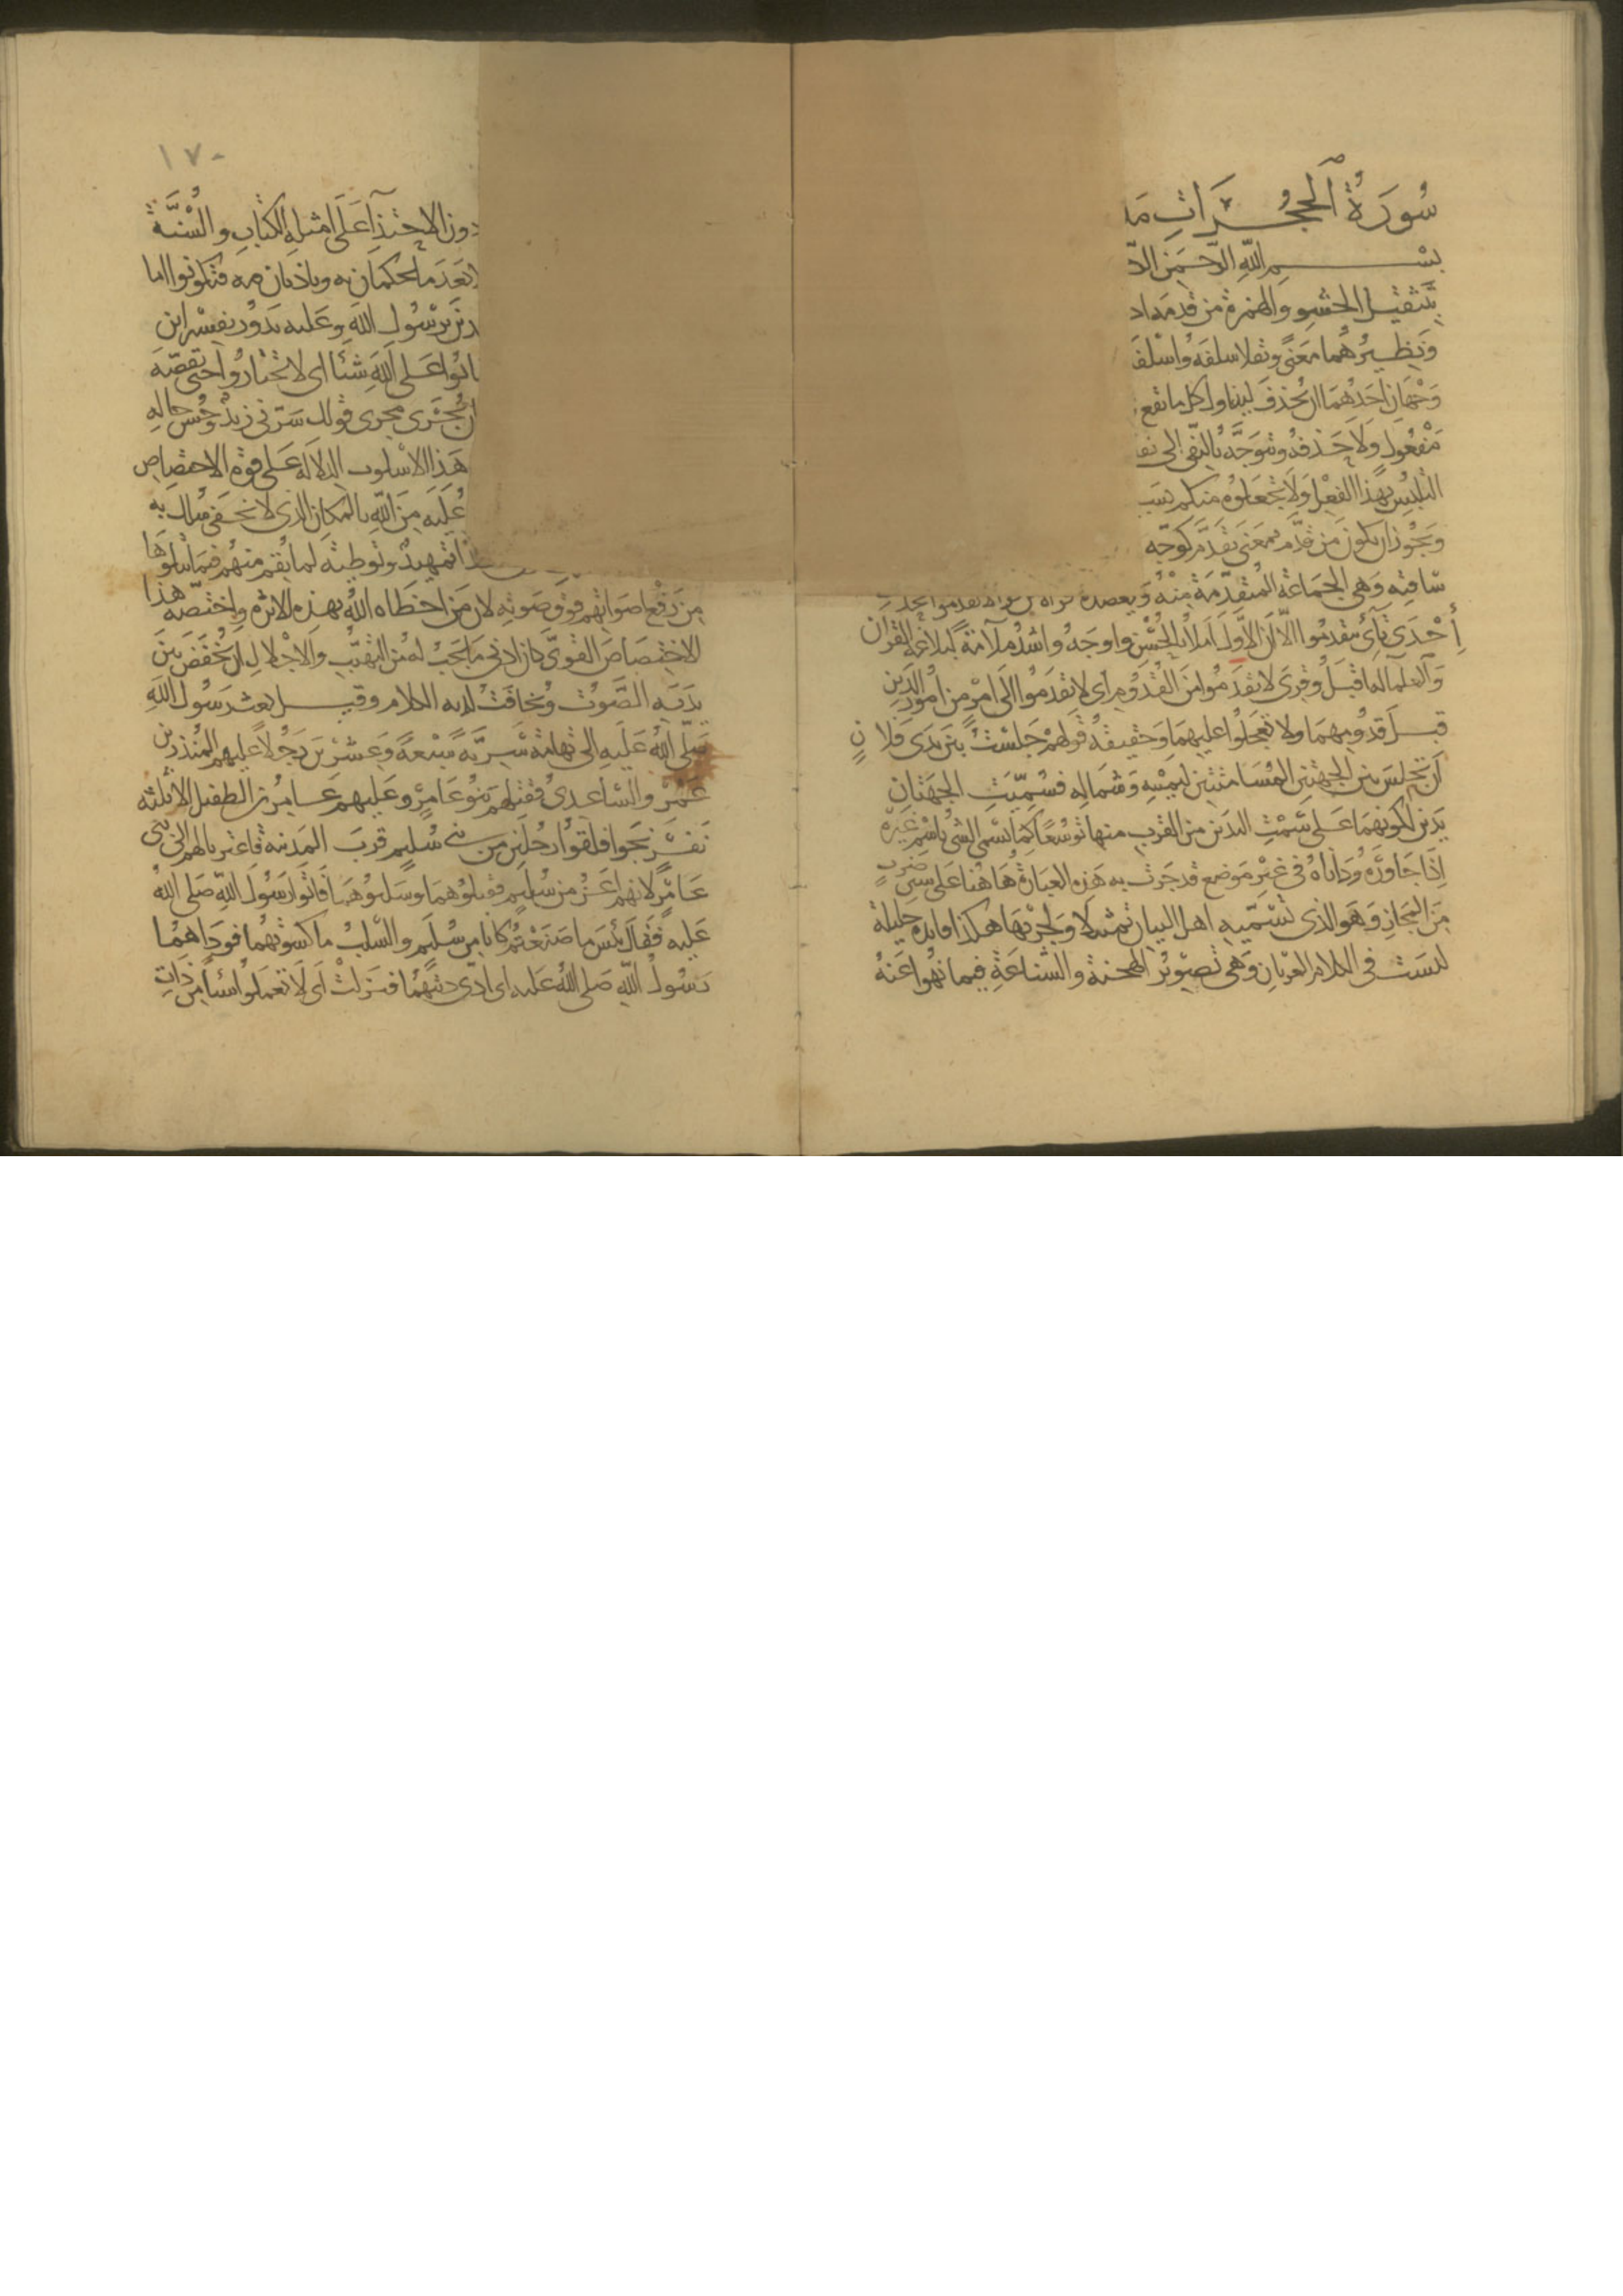 سُورَةُ الْحُجُرَاتِ
بسم الله الرحمن
بتثقيل الحشو والهمزة من قدمه اذ
ونظيرهما معنى ونقلا سلفه واسلفه
وجهان احدهما ان يحذف ليتناول كل ما يقع
مفعول ولا حذفه ويتوجه بالنهى الى
التلبس بهذا الفعل ولا تجعلوه منكم بسبب
ويجوز ان يكون من قدم بمعنى تقدم كوجه
ساقته وهى الجماعة المتقدمة منه ويعضده
احدى تائى تتقدموا الا ان الاول املأ بالحسن واوجه واشد ملآمة لبلاغة القرآن
والعلمآ له اقبل وقرى لا تقدموا من القدوم اى لا تقدموا الى امر من امور الدين
قبل قدومهما ولا تعجلوا عليهما وحقيقة قولهم جلست بين يدى فلان
ان تجلس بين الجهتين المسامتتين ليمينه وشماله فسميت الجهتان
يدين لكونهما على سمت اليدين من القرب منها توسعا كما تسمى الشى باسم غيره
اذا جاوره وداناه فى غير موضع قد جرت به هذه العبارة هاهنا على سنن ضرب
من المجاز وهو الذى تسميه اهل البيان تمثيلا ولجريها هكذا فايدة جليلة
ليست فى الكلام العريان وهى تصوير الهجنة والشناعة فيما نهوا عنه
١٧٠
دون الاحتذآ على امثلة الكتاب والسنة
بعد ما يحكمان به وياذنان فيه فتكونوا اما
رسول الله وعليه يدور تفسير ابن
على الله شئا اى لا تختاروا حتى يقصه
ان يجرى مجرى قولك سرنى زيد وحسن حاله
هذا الاسلوب الدلالة على قوة الاختصاص
عليه من الله بالمكان الذى لا يخفى سلك به
تمهيد وتوطئة لما نقم منهم فيما يتلوها
من رفع اصواتهم فوق صوته لان من احظاه الله بهذه الاثرة واختصه هذا
الاختصاص القوى كان ادنى ما يجب له من التهيب والاجلال ان يخفض بين
يديه الصوت ويخافت لديه الكلام وقيل بعث رسول الله
صلى الله عليه الى تهامة سرية سبعة وعشرين رجلا عليهم المنذر بن
عمرو الساعدى فقتلهم بنو عامر وعليهم عامر بن الطفيل الا ثلثة
نفر نجوا فلقوا رجلين من بنى سليم قرب المدينة فاعتزيا لهم الى بنى
عامر لانهم اعز من سليم فقتلوهما وسلبوهما فاتوا رسول الله صلى الله
عليه فقال بئس ما صنعتم كانا من سليم والسلب ما كسوتهما فوداهما
رسول الله صلى الله عليه اى ادى ديتهما فنزلت اى لا تعملوا شئا من ذات